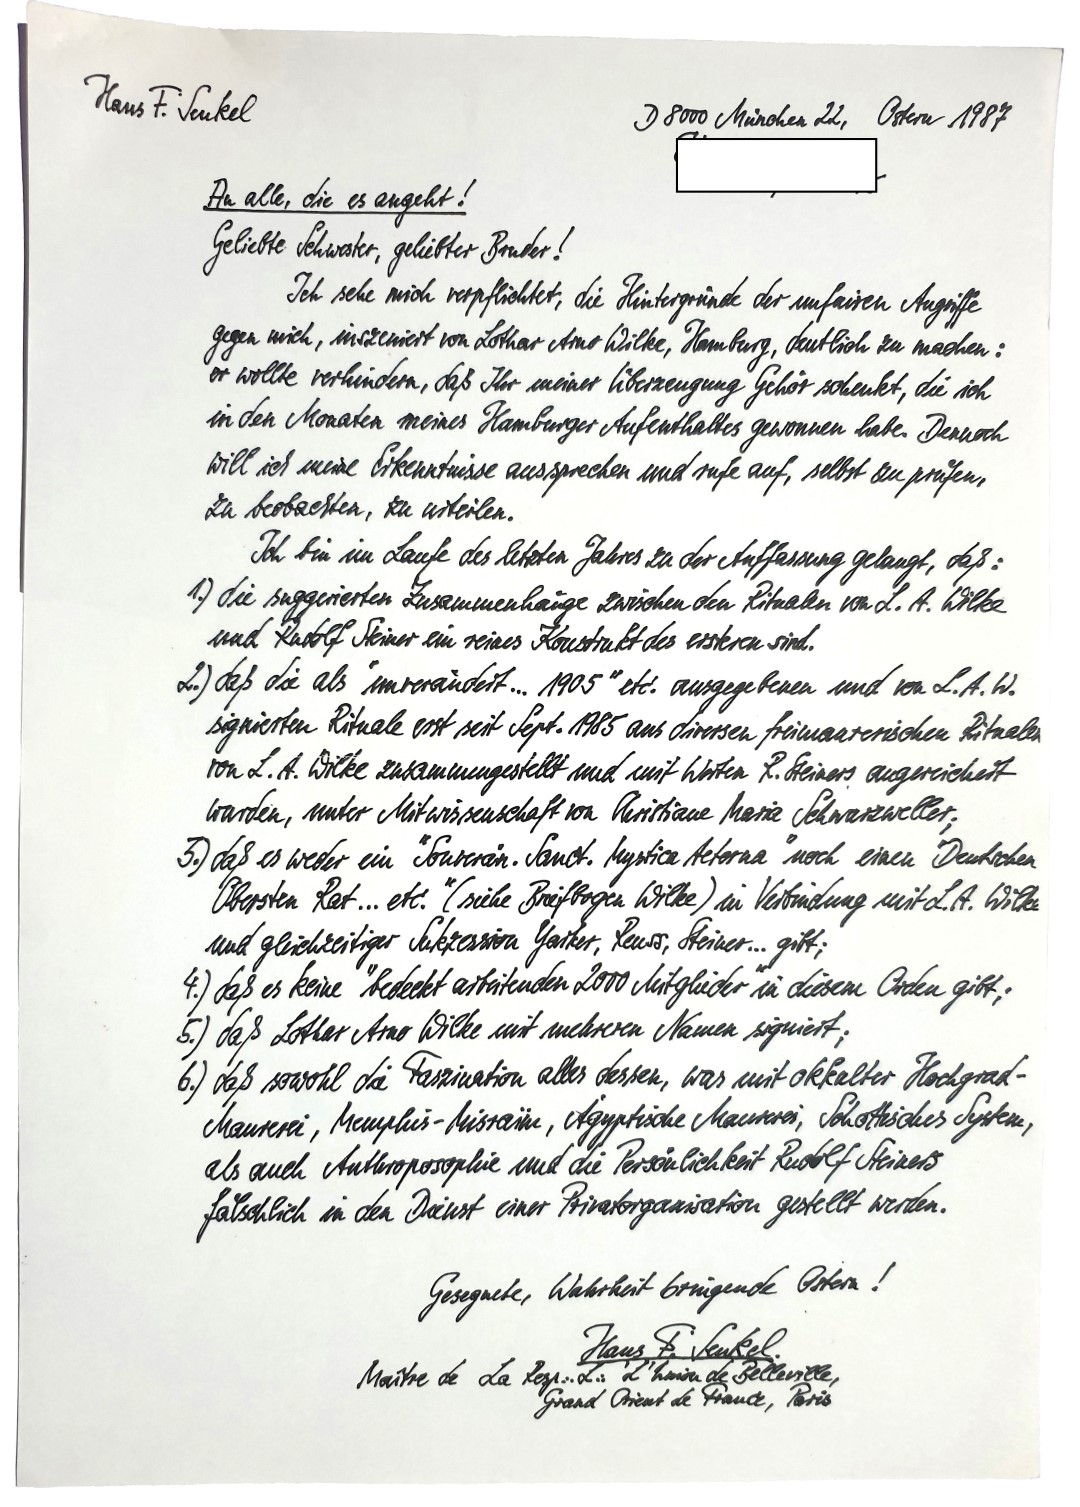 Hans F. Senkel
D 8000 München 22, Ostern 1987
An alle, die es angeht!
Geliebte Schwester, geliebter Bruder!
Ich sehe mich verpflichtet, die Hintergründe der unfairen Angriffe
gegen mich, inszeniert von Lothar Arno Wilke, Hamburg, deutlich zu machen:
er wollte verhindern, daß Ihr meiner Überzeugung Gehör schenkt, die ich
in den Monaten meines Hamburger Aufenthaltes gewonnen habe. Dennoch
will ich meine Erkenntnisse aussprechen und rufe auf, selbst zu prüfen,
zu beobachten, zu urteilen.
Ich bin im Laufe des letzten Jahres zu der Auffassung gelangt, daß:
1.) die suggerierten Zusammenhänge zwischen den Ritualen von L. A. Wilke
und Rudolf Steiner ein reines Konstrukt des ersteren sind.
2.) daß die als "unverändert... 1905" etc. ausgegebenen und von L. A. W.
signierten Rituale erst seit Sept. 1985 aus diversen freimaurerischen Ritualen
von L. A. Wilke zusammengestellt und mit Worten R. Steiners angereichert
wurden, unter Mitwissenschaft von Christiane Maria Schwarzweller;
3.) daß es weder ein "Souverän. Sanct. Mystica Aeterna" noch einen "Deutschen
Obersten Rat... etc." (siehe Briefbogen Wilke) in Verbindung mit L. A. Wilke
und gleichzeitiger Sukzession Yarker, Reuss, Steiner... gibt;
4.) daß es keine "bedeckt arbeitenden 2000 Mitglieder" in diesem Orden gibt;
5.) daß Lothar Arno Wilke mit mehreren Namen signiert;
6.) daß sowohl die Faszination alles dessen, was mit okkulter Hochgrad-
Maurerei, Memphis-Misraim, Ägyptische Maurerei, Schottisches System,
als auch Anthroposophie und die Persönlichkeit Rudolf Steiners
fälschlich in den Dienst einer Privatorganisation gestellt werden.
Gesegnete, Wahrheit bringende Ostern!
Hans F. Senkel.
Maître de La Resp∴ L∴ "L'Union de Belleville,
Grand Orient de France, Paris